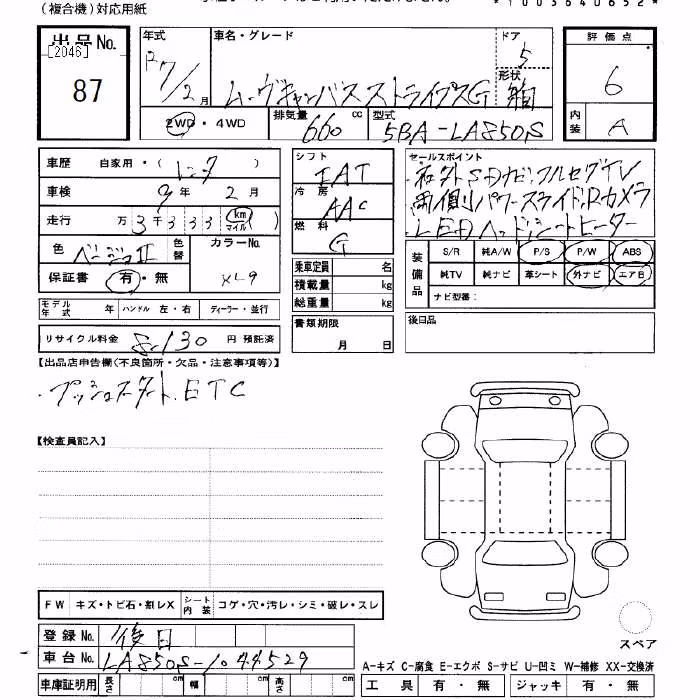 (複合機)対応用紙
*1003640652*
出品No.
[2046]
87
年式
R7/2月
車名・グレード
ムーヴキャンバスストライプスG
ドア
5
形状
箱
2WD・4WD
排気量
660 cc
型式
5BA-LA850S
評価点
6
内装
A
車歴 自家用・(レンタ)
車検 9年2月
走行 万3千333 km マイル
色 ベージュII
色替
カラーNo.
X49
保証書 有・無
モデル年式 年 ハンドル 左・右 ディーラー・並行
リサイクル料金 8,130円 預託済
シフト
IAT
冷房
AAC
燃料
G
乗車定員 名
積載量 kg
総重量 kg
書類期限
月 日
セールスポイント
・社外SDナビ、フルセグTV
両側パワースライド、Rカメラ
・LEDヘッド、シートヒーター
装備品
S/R 純A/W P/S P/W ABS
純TV 純ナビ 革シート 外ナビ エアB
ナビ型番:
後日品
【出品店申告欄(不良箇所・欠品・注意事項等)】
・プッシュスタート、ETC
【検査員記入】
FW キズ・トビ石・割レX シート内装 コゲ・穴・汚レ・シミ・破レ・スレ
登録No. 後日
車台No. LA850S-1044529
車庫証明用 長さ cm 幅 cm 高さ cm
スペア
A-キズ C-腐食 E-エクボ S-サビ U-凹ミ W-補修 XX-交換済
工具 有・無 ジャッキ 有・無